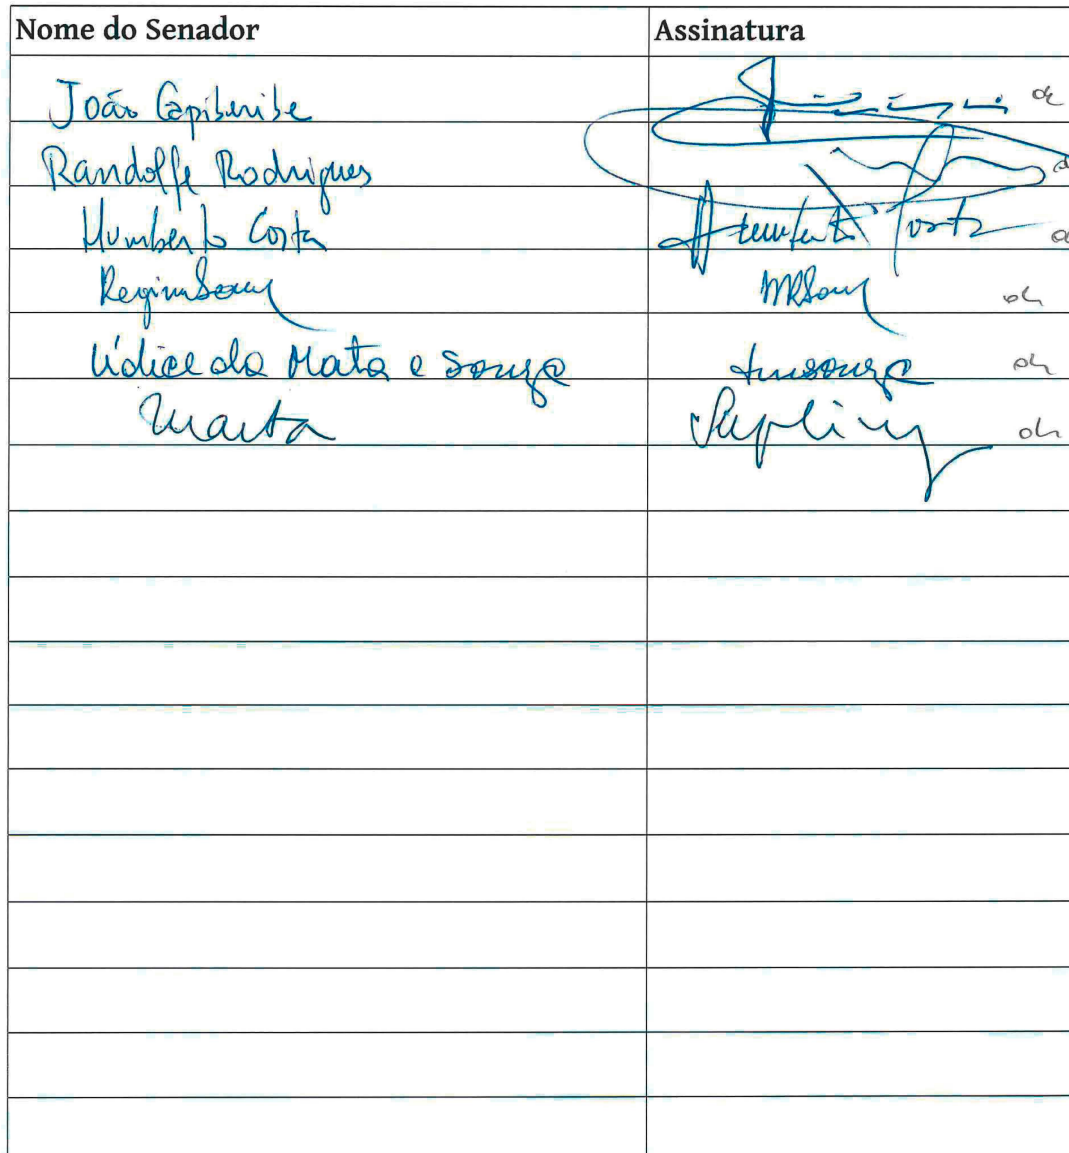 Nome do Senador Assinatura
João Capiberibe
Randolfe Rodrigues
Humberto Costa Humberto Costa
Regina Sousa MRSousa
Lídice da Mata e Souza
Marta Suplicy